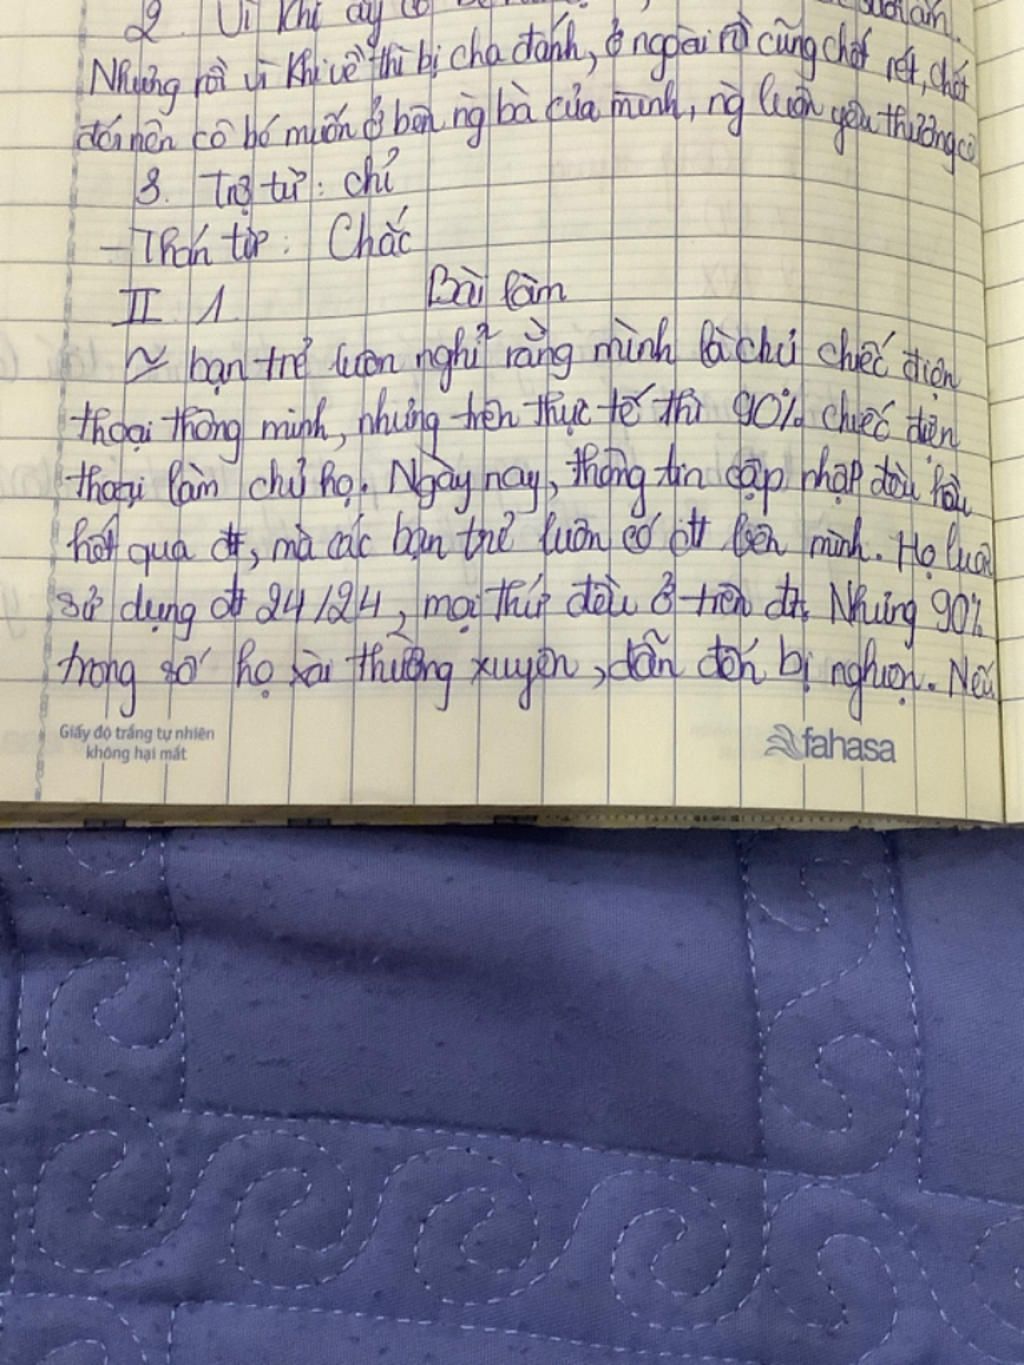 2. Vì khi ấy cô
Nhưng rồi vì khi về thì bị cha đánh, ở ngoài rồi cũng chết rét, chết
đói nên cô bé muốn ở bên ng bà của mình, ng luôn yêu thương cô
3. Trợ từ: chỉ
- Thán từ: Chắc
II 1. Bài làm
~ bạn trẻ luôn nghĩ rằng mình là chủ chiếc điện
thoại thông minh, nhưng trên thực tế thì 90% chiếc điện
thoại làm chủ họ. Ngày nay, thông tin cập nhập đều hầu
hết qua đt, mà các bạn trẻ luôn có đt bên mình. Họ luôn
sử dụng đt 24/24, mọi thứ đều ở trên đt. Nhưng 90%
trong số họ xài thường xuyên, dẫn đến bị nghiện. Nếu
Giấy độ trắng tự nhiên
không hại mắt
fahasa